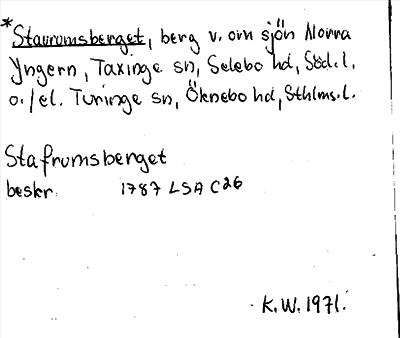 *Stavrumsberget, berg v. om sjön Norra
Yngern, Taxinge sn, Selebo hd, Söd. l.
o./el. Turinge sn, Öknebo hd, Sthlms. l.
Stafrumsberget
beskr. 1787 LSA C26
K.W. 1971.